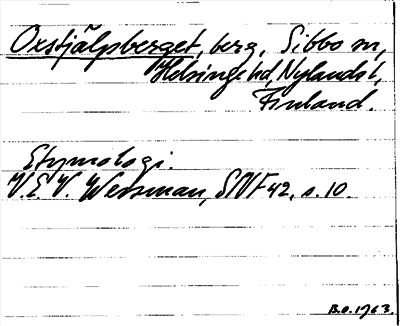 Oxstjälpsberget, berg, Sibbo sn,
Helsinge hd, Nylands l,
Finland.
Etymologi.
V.E.V. Wessman, SNF 42, s. 10.
B.O. 1963.